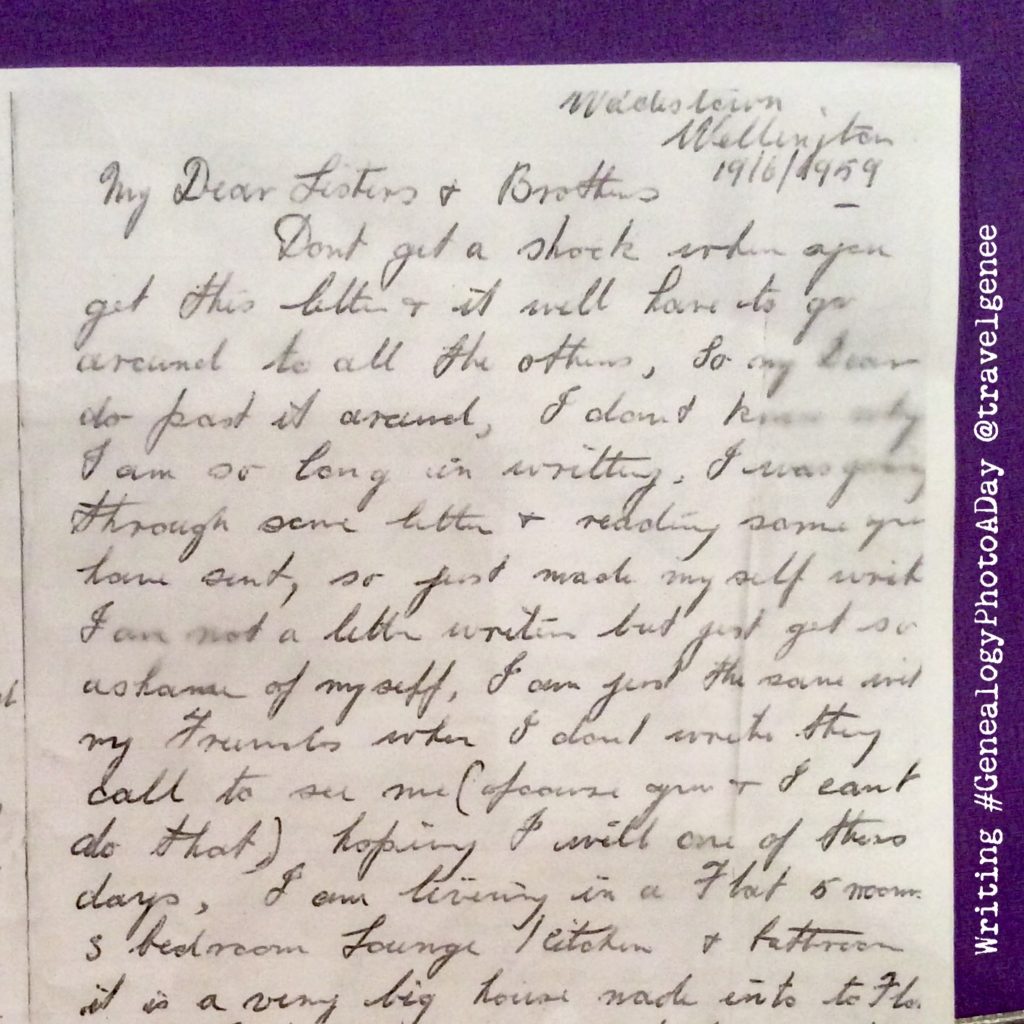 Wadestown
Wellington
19/6/1959
My Dear Sisters & Brothers
Dont get a shock when you
get this letter & it will have to go
around to all the others, So my Dear
do past it around, I dont know why
I am so long in writting, I was going
through some letter & reading some you
have sent, so just made my self writ
I am not a letter writer but just get so
ashame of myself, I am just the same wit
my Freinds when I dont write they
call to see me (ofcourse you & I cant
do that) hoping I will one of thess
days, I am liveing in a Flat 5 room
3 bedroom Lounge Kitchen & bathroom
it is a very big house made into to Fla
Writing #GenealogyPhotoADay @travelgenee